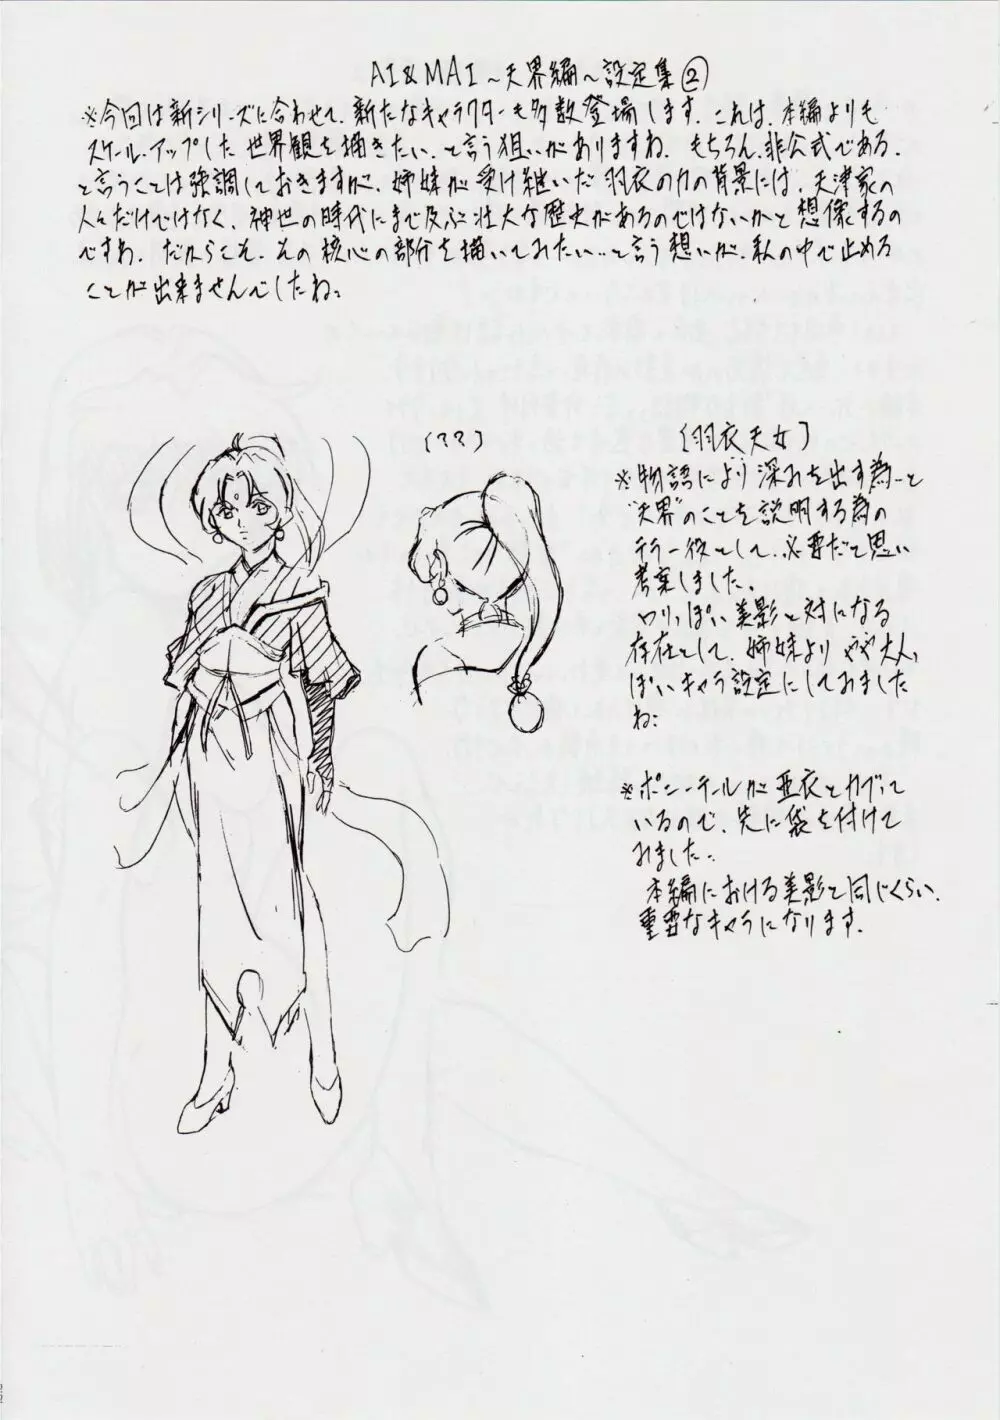 AI&MAI～天界編～設定集②
※今回は新シリーズに合わせて、新たなキャラクターも多数登場します。これは、本編よりも
スケール・アップした世界観を描きたい、と言う狙いがありますね。もちろん、非公式である、
と言うことは強調しておきますが、姉妹が受け継いだ羽衣の力の背景には、天津家の
人々だけではなく、神世の時代にまで及ぶ壮大な歴史があるのではないかと想像するの
ですね。だからこそ、その核心の部分を描いてみたい…と言う想いが、私の中で止める
ことが出来ませんでしたね。
(??)
[羽衣天女]
※物語により深みを出す為…と
"天界"のことを説明する為の
テラー役として、必要だと思い
考案しました。
ロリっぽい美影と対になる
存在として、姉妹よりやや大人っ
ぽいキャラ設定にしてみました
ね。
※ポニーテールが亜衣とカブって
いるので、先に袋を付けて
みました。
本編における美影と同じくらい、
重要なキャラになります。